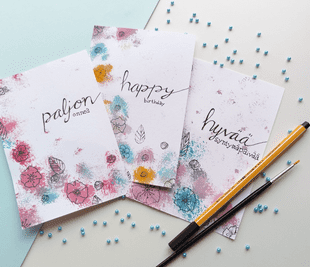 paljon
onnea
happy
birthday
hyvää
syntymäpäivää